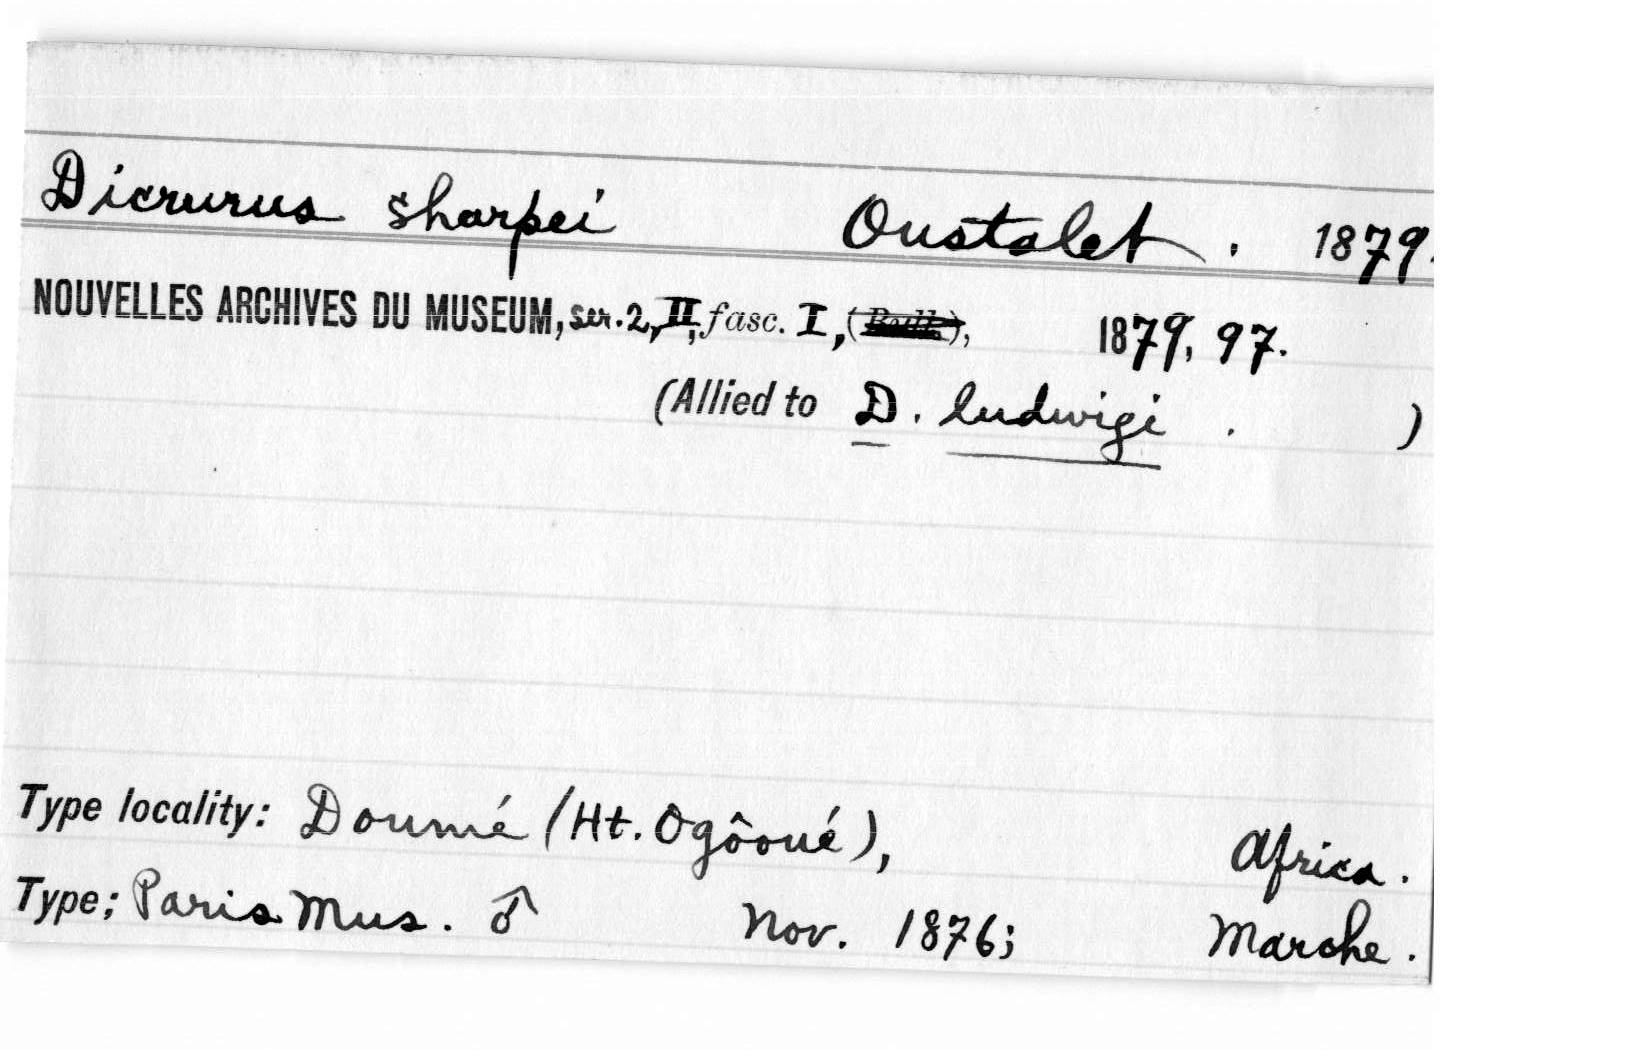 Dicrurus sharpei Oustalet. 1879.
NOUVELLES ARCHIVES DU MUSEUM, ser. 2, II, fasc. I, (Bull.), 1879, 97.
(Allied to D. ludwigi . )
Type locality: Doumé (Ht. Ogôoué), Africa.
Type; Paris Mus. ♂ Nov. 1876; Marche.